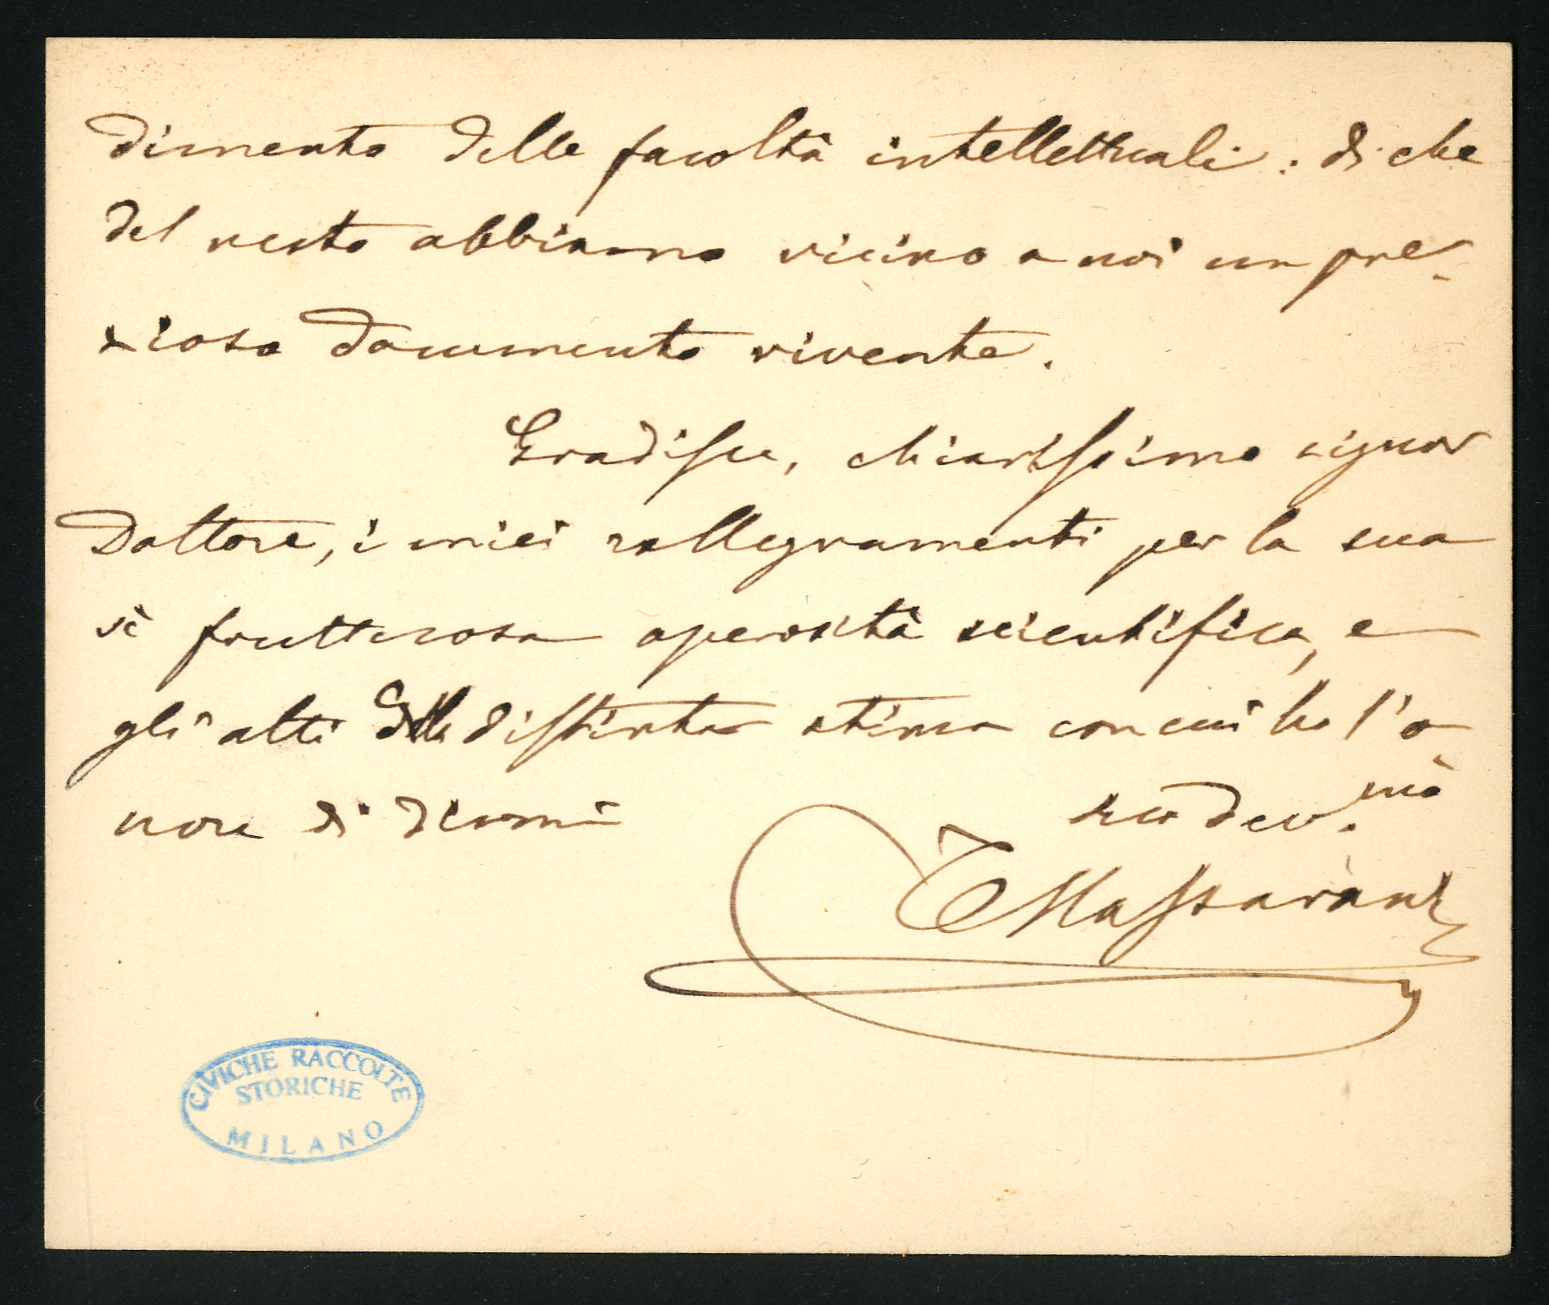 dimento delle facoltà intellettuali: di che
del resto abbiamo vicino a noi un pre-
zioso documento vivente.
Gradisca, chiarissimo signor
Dottore, i miei rallegramenti per la sua
sì fruttuosa operosità scientifica, e
gli atti della distinta stima con cui ho l'o-
nore di dirmi
suo dev.mo
T Massarani
CIVICHE RACCOLTE
STORICHE
MILANO